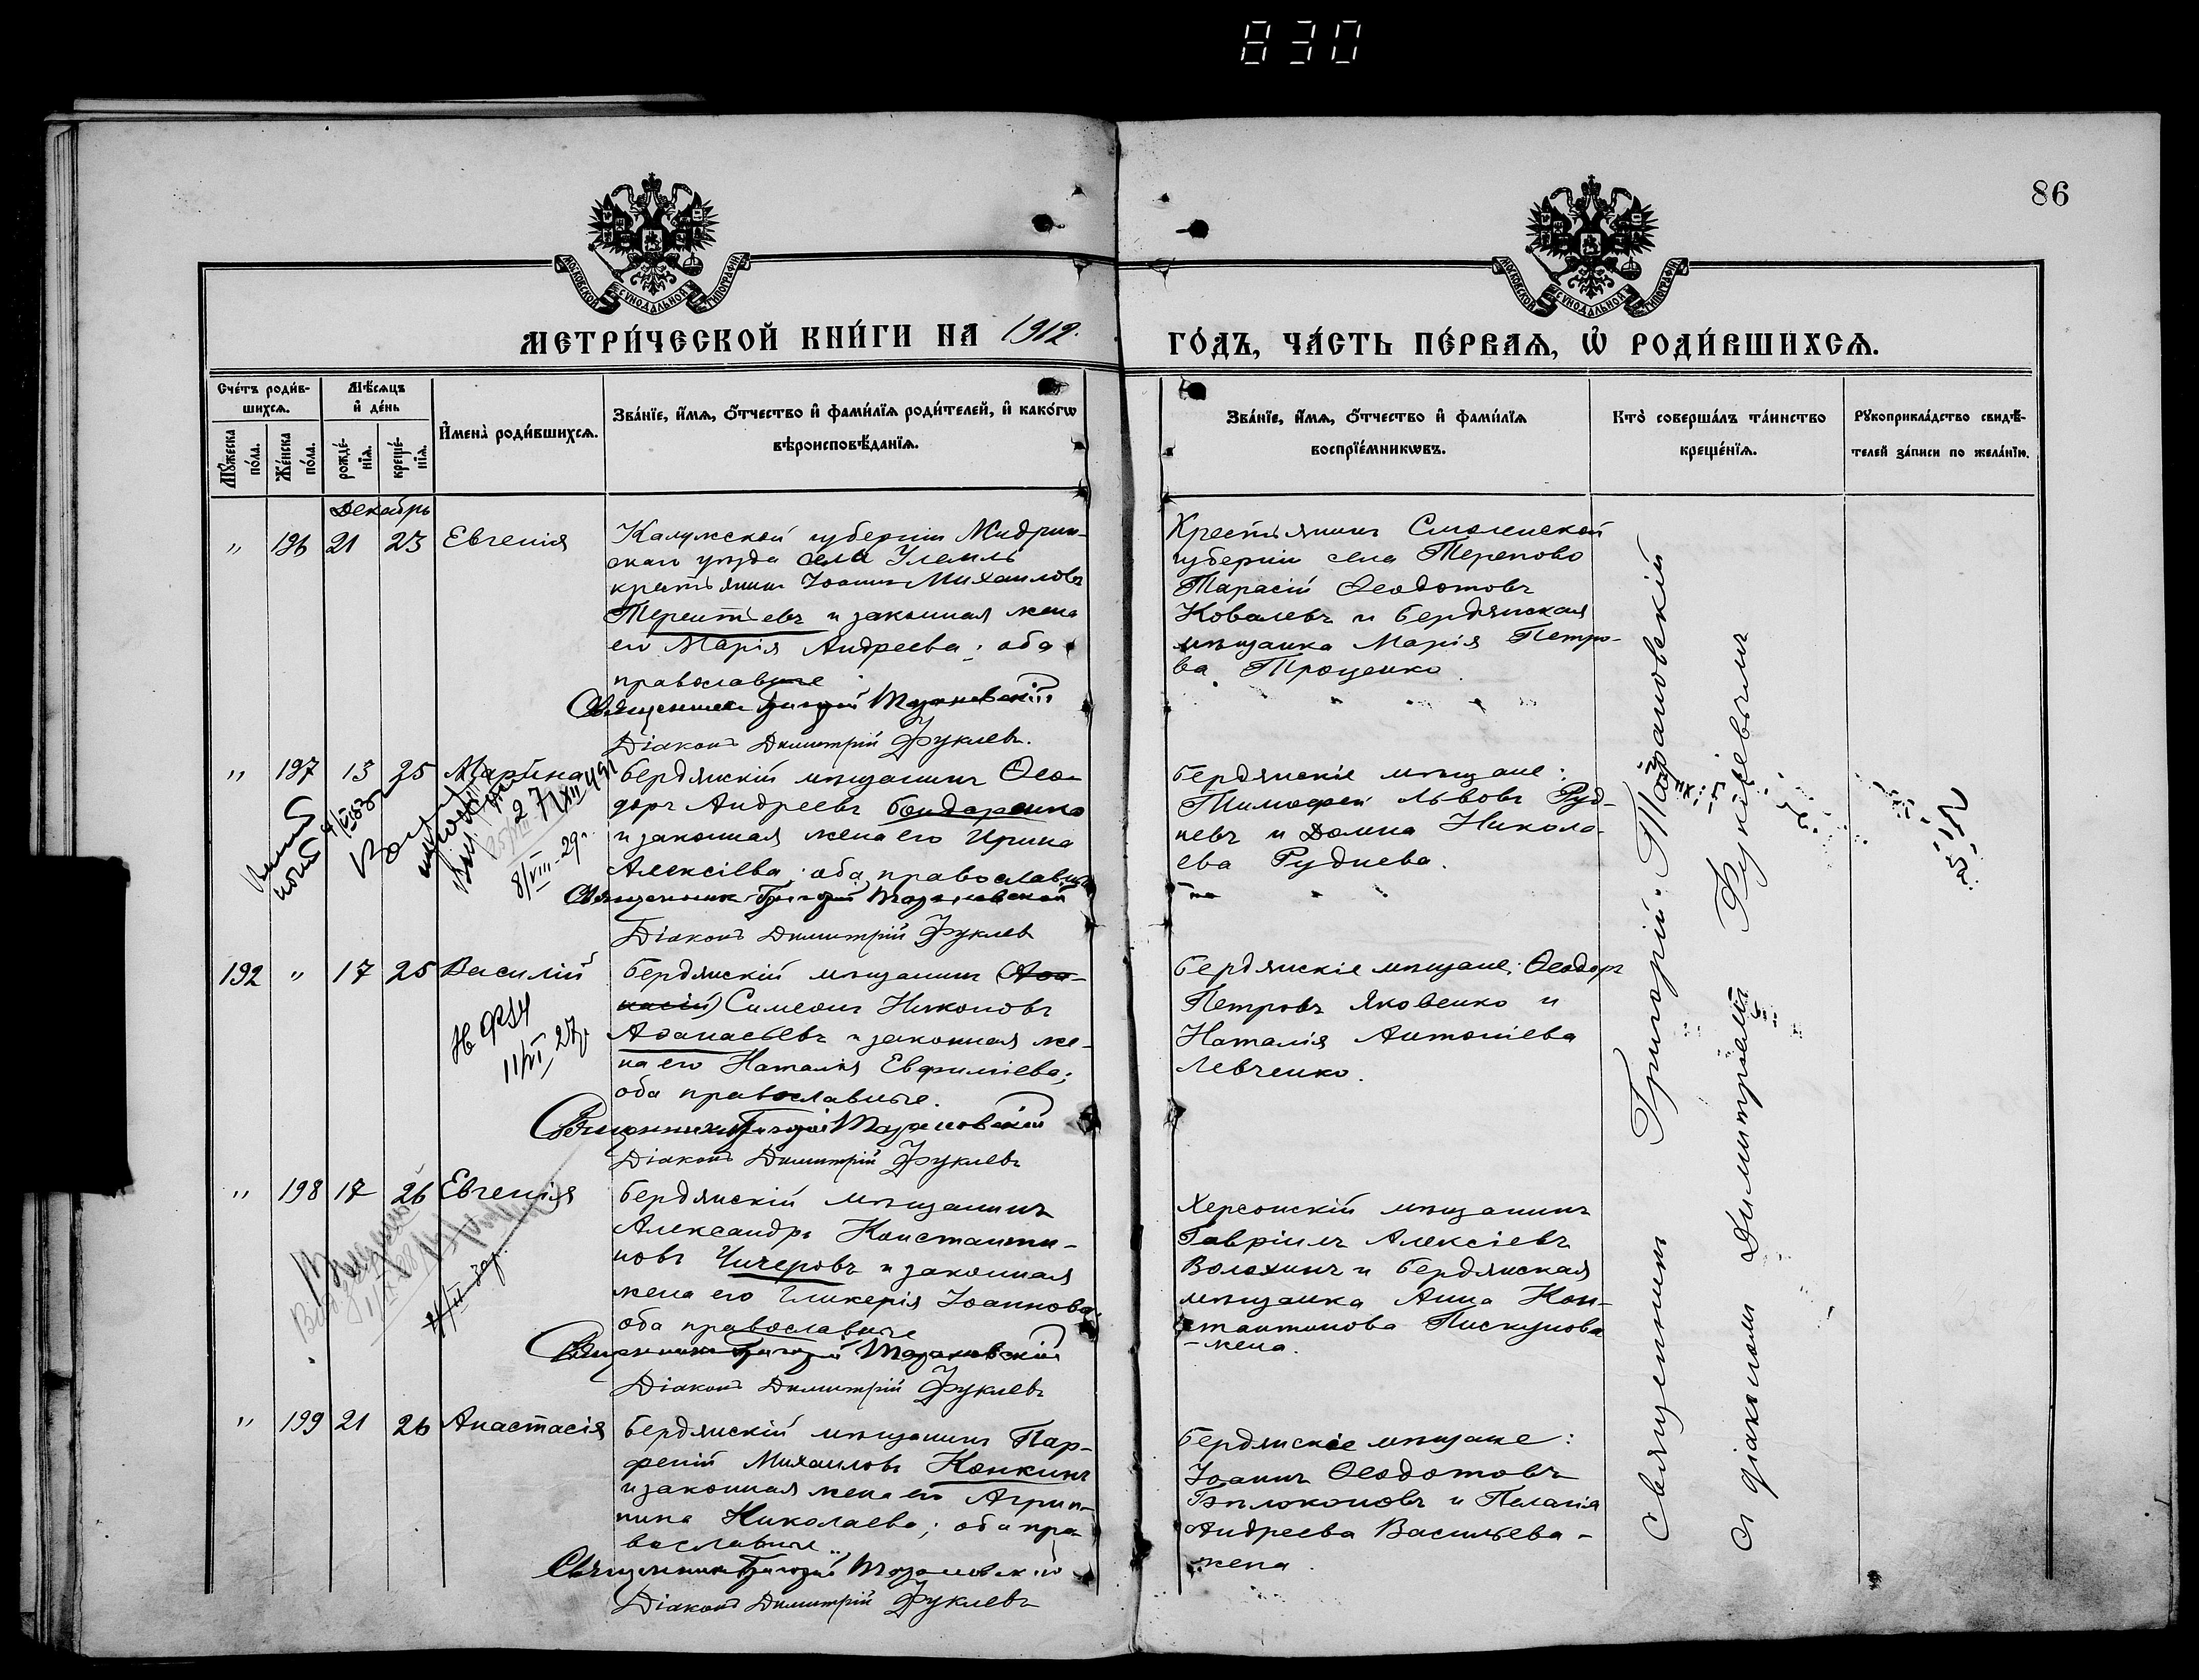 830
86
МОСКОВСКОЙ СѴНОДАЛЬНОЙ ТИПОГРАФІИ
МОСКОВСКОЙ СѴНОДАЛЬНОЙ ТИПОГРАФІИ
МЕТРИ́ЧЕСКОЙ КНИ́ГИ НА 1912.
ГО́ДЪ, ЧА́СТЬ ПЕ́РВАѦ, Ѡ҆ РОДИ́ВШИХСѦ.
Сче́тъ роди́в-
шихсѧ.
Мѣ́сѧцъ
и҆ де́нь
Мꙋ́жеска
по́ла.
Же́нска
по́ла.
рожде́-
нїѧ.
креще́-
нїѧ.
И҆мена̀ роди́вшихсѧ.
Зва́нїе, и҆́мѧ, ѻ҆́тчество и҆ фами́лїѧ роди́телей, и҆ како́гѡ
вѣроисповѣ́данїѧ.
Зва́нїе, и҆́мѧ, ѻ҆́тчество и҆ фами́лїѧ
воспрїе́мникѡвъ.
Кто̀ соверша́лъ та́инство
креще́нїѧ.
Рꙋкоприкла́дство свидѣ́-
телей за́писи по жела́нїю.
Декабрь
" 196 21 23 Евгенія
Калужской губерніи
уѣзда села Улемль
крестьянинъ Іоаннъ Михаиловъ
Терентьевъ и законная жена
его Марія Андреева; оба
православные
Священникъ Григорій Тарановскій
Діаконъ Димитрій Фуклевъ.
Крестьянинъ Смоленской
губерніи села Терепово
Тарасій Ѳеодотовъ
Ковалевъ и Бердянская
мѣщанка Марія Петро-
ва Проценко
" 197 13 25 Марина
8/VIII-29г.
Бердянскій мѣщанинъ Ѳео-
доръ Андреевъ Бондаренко
и законная жена его Ирина
Алексіева; оба православны
Священникъ Григорій Тарановскій
Діаконъ Димитрій Фуклев
Бердянскіе мѣщане:
Тимоѳей Львовъ Руд-
невъ и Домна Никола-
ева Руднева.
192 " 17 25 Василій
11/VI 27г
Бердянскій мѣщанинъ (Аѳа-
насій) Симеонъ Никоновъ
Аѳанасьевъ и законная же-
на его Наталія Евфиміева;
оба православные.
Священникъ Григорій Тарановскій
Діаконъ Димитрій Фуклевъ
Бердянскіе мѣщане: Ѳеодоръ
Петровъ Яковенко и
Наталія Антоніева
Левченко.
" 198 17 26 Евгенія
Бердянскій мѣщанинъ
Александръ Константи-
новъ Чичеровъ и законная
жена его Гликерія Іоаннова;
оба православные
Священникъ Григорій Тарановскій
Діаконъ Димитрій Фуклевъ
Херсонскій мѣщанинъ
Гавріилъ Алексіевъ
Волохинъ и Бердянская
мѣщанка Анна Кон-
стантинова Пискунова
-жена.
" 199 21 26 Анастасія
Бердянскій мѣщанинъ Пар-
ѳеній Михаиловъ Конкинъ
и законная жена его Агрип-
пина Николаева; оба пра-
вославные
Священникъ Григорій Тарановскій
Діаконъ Димитрій Фуклевъ
Бердянскіе мѣщане:
Іоаннъ Ѳеодотовъ
Бѣлоконовъ и Пелагія
Андреева Васильева-
жена.
Священникъ Григорій Тарановскій
съ діакономъ Димитріемъ Фуклевымъ